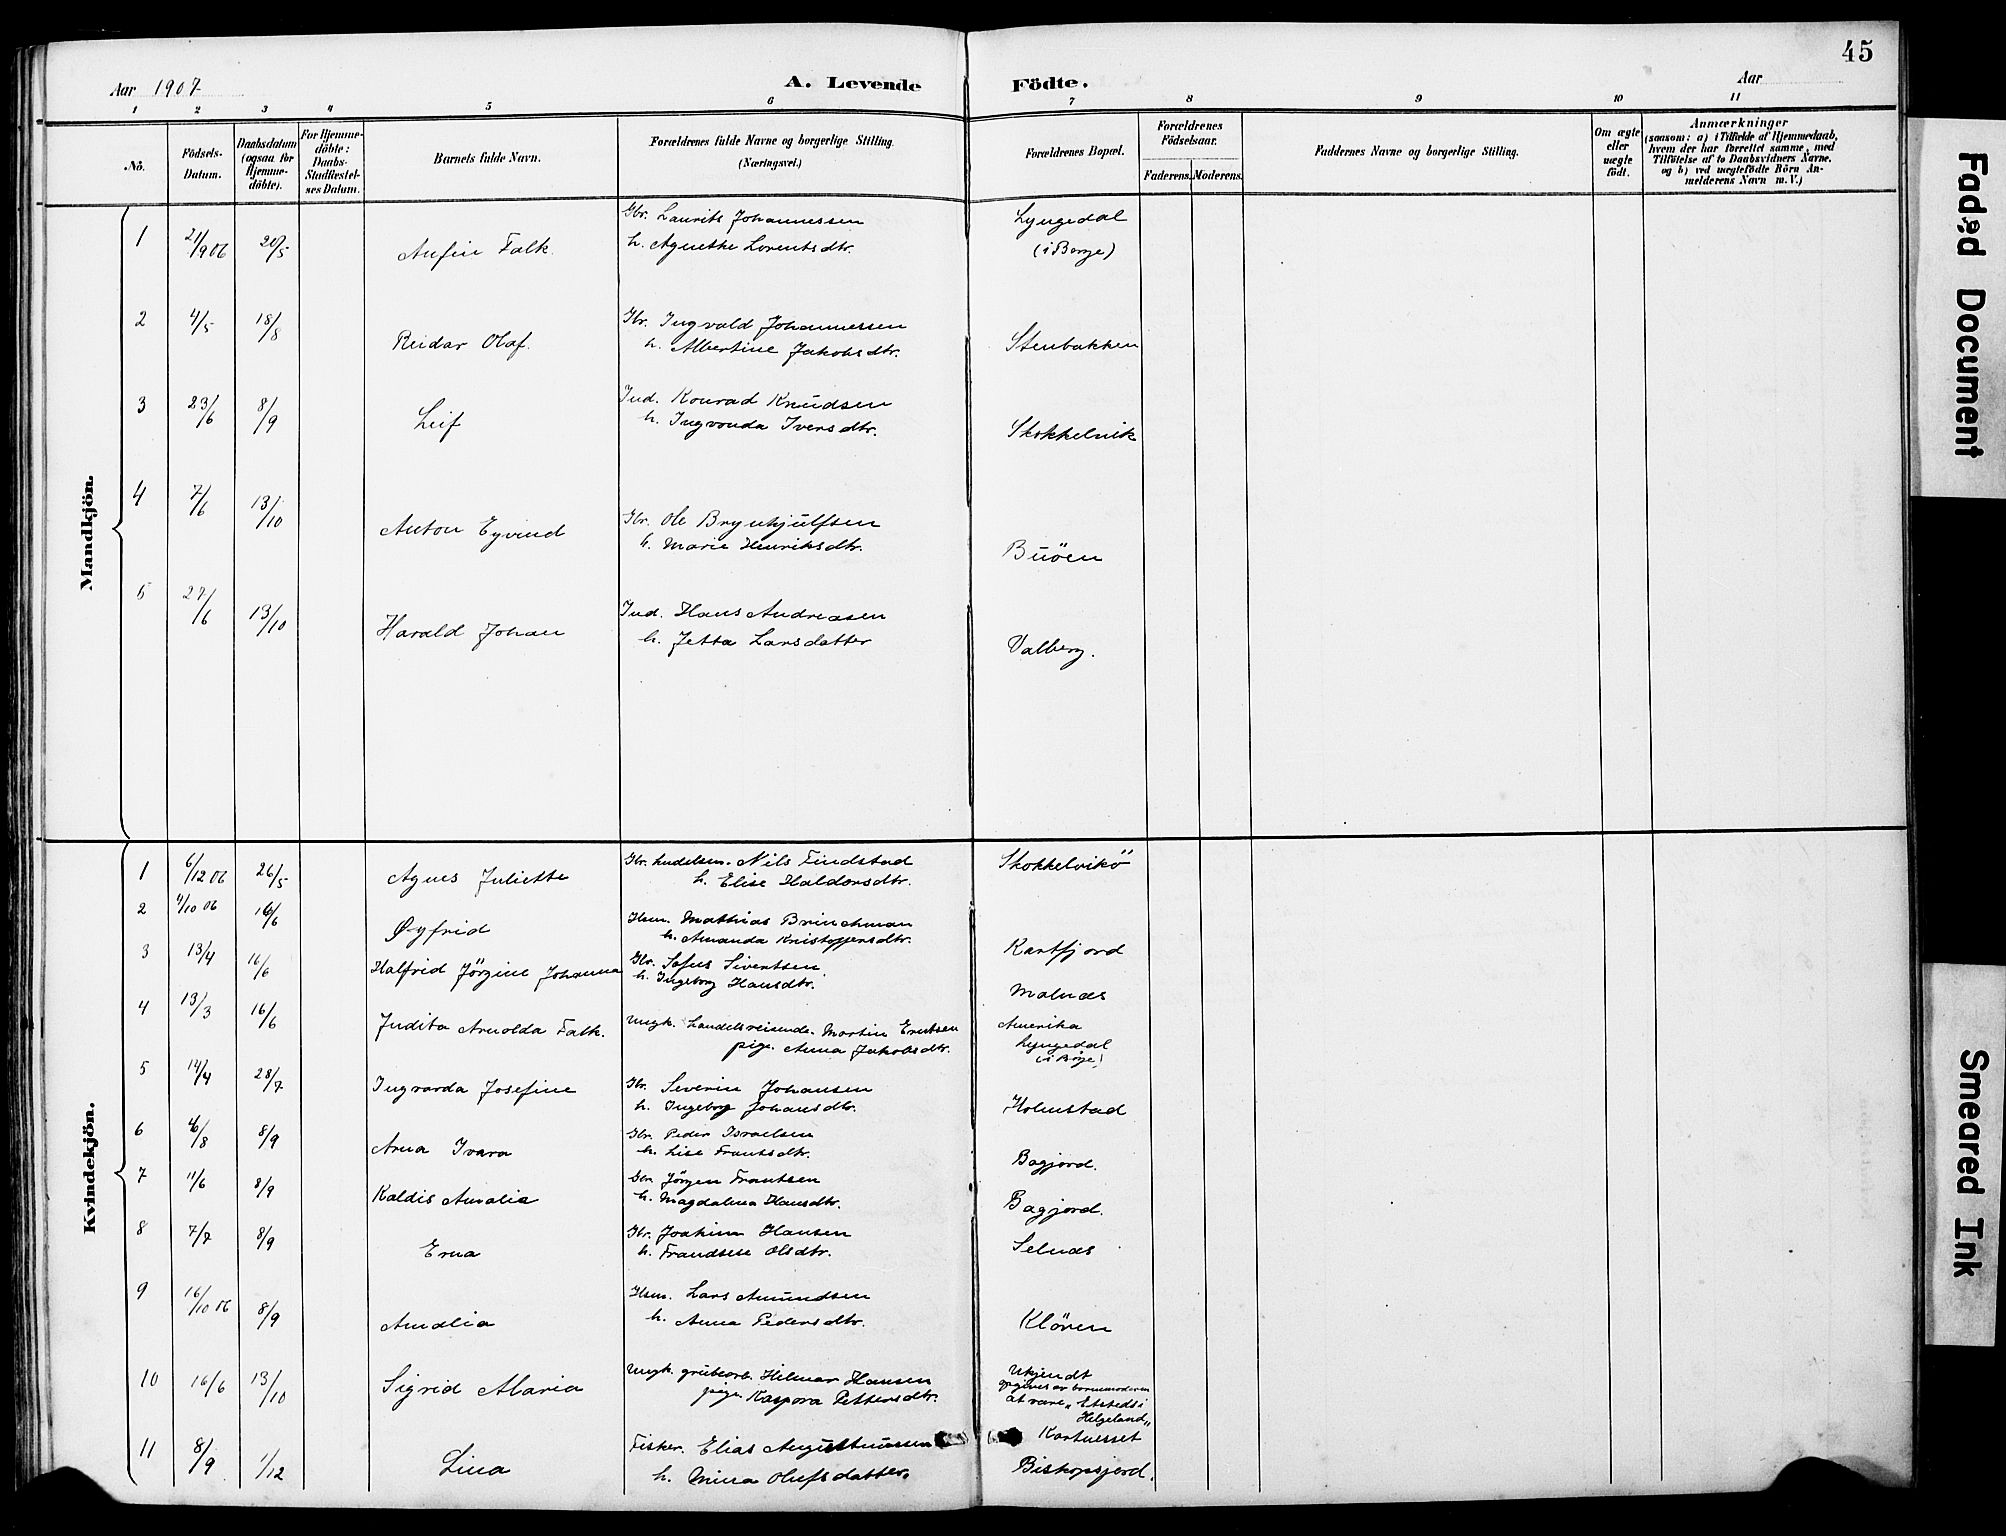 45
Aar 1907
A. Levende Födte.
Aar
1 2 3 4 5 6 7 8 9 10 11
No.
Födsels-Datum.
Daabsdatum (ogsaa for Hjemmedöbte).
For Hjemmedöbte: Daabs-Stadfæstelses Datum.
Barnets fulde Navn.
Forældrenes fulde Navne og borgerlige Stilling. (Næringsvei.)
Forældrenes Bopæl.
Forældrenes Födselsaar.
Faderens. Moderens.
Faddernes Navne og borgerlige Stilling.
Om ægte eller uægte födt.
Anmærkninger
(saasom: a) i Tilfælde af Hjemmedaab, hvem der har forrettet samme, med Tilföielse af to Daabsvidners Navne, og b) ved uægtefödte Börn Anmelderens Navn m. V.)
Mandkjön.
1 21/9 06 20/5 Anfin Falk. Gbr. Laurits Johannessen Lyngedal
h. Agnethe Lorentsdtr. (i Borge)
2 4/5 18/8 Reidar Olaf. Gbr. Ingvald Johannessen
h. Albertine Jakobsdtr. Stenbakken
3 23/6 8/9 Leif Ind. Konrad Knudsen
h. Ingvarda Iversdtr. Skokkelvik
4 7/6 13/10 Anton Eyvind Gbr. Ole Brynhjulfsen
h. Marie Henriksdtr. Buöen
5 27/6 13/10 Harald Johan Ind. Hans Andreasen
h. Jetta Larsdatter Valberg.
Kvindekjön.
1 6/12 06 26/5 Agnes Juliette Gbr. handelsm. Nils Findstad Skokkelvikö
h. Elise Haldorsdtr.
2 4/10 06 16/6 Øyfrid Hsm. Mathias Brinchman
h. Amanda Kristoffersdtr. Kartfjord
3 13/4 16/6 Halfrid Jörgine Johanna Gbr. Sofus Sivertsen
h. Ingeborg Hansdtr. Malnæs
4 13/3 16/6 Judita Arnolda Falk. Ungk. handelsreisende. Martin Erntsen Amerika
pige. Anna Jakobsdtr. Lyngedal
(i Börge)
5 14/4 28/7 Ingvarda Josefine Gbr. Severin Johansen
h. Ingeborg Johansdtr. Holmstad
6 6/8 8/9 Arna Ivara Gbr. Peder Israelsen
h. Lise Frantsdtr. Bagjord.
7 11/6 8/9 Kaldis Amalia Gbr. Jörgen Frantsen
h. Magdalena Hansdtr. Bagjord.
8 7/7 8/9 Erna Gbr. Joakim Hansen
h. Frandsese Olsdtr. Selnæs
9 16/10 06 8/9 Amalia Hsm. Lars Amundsen
h. Anna Pedersdtr. Klöven
10 16/6 13/10 Sigrid Maria Ungk. grubearb. Hilmar Hansen Ukjendt
pige. Kaspora Pettersdtr. opgives av barnemoderen
at være „Etsteds i
Helgeland„
Kartnesset
11 8/9 1/12 Lina Fisker. Elias Augustinussen
h. Mina Olufsdatter. Biskopsjord.
Faded Document
Smeared Ink